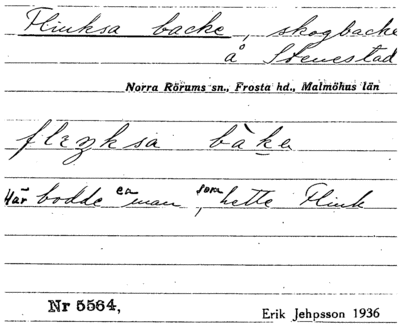 Flinksa backe, skogbacke
å Stenestad
Norra Rörums sn., Frosta hd., Malmöhus län
fliŋksa bàkẹ
Här bodde en man, som hette Flink
Nr 5564,
Erik Jehpsson 1936